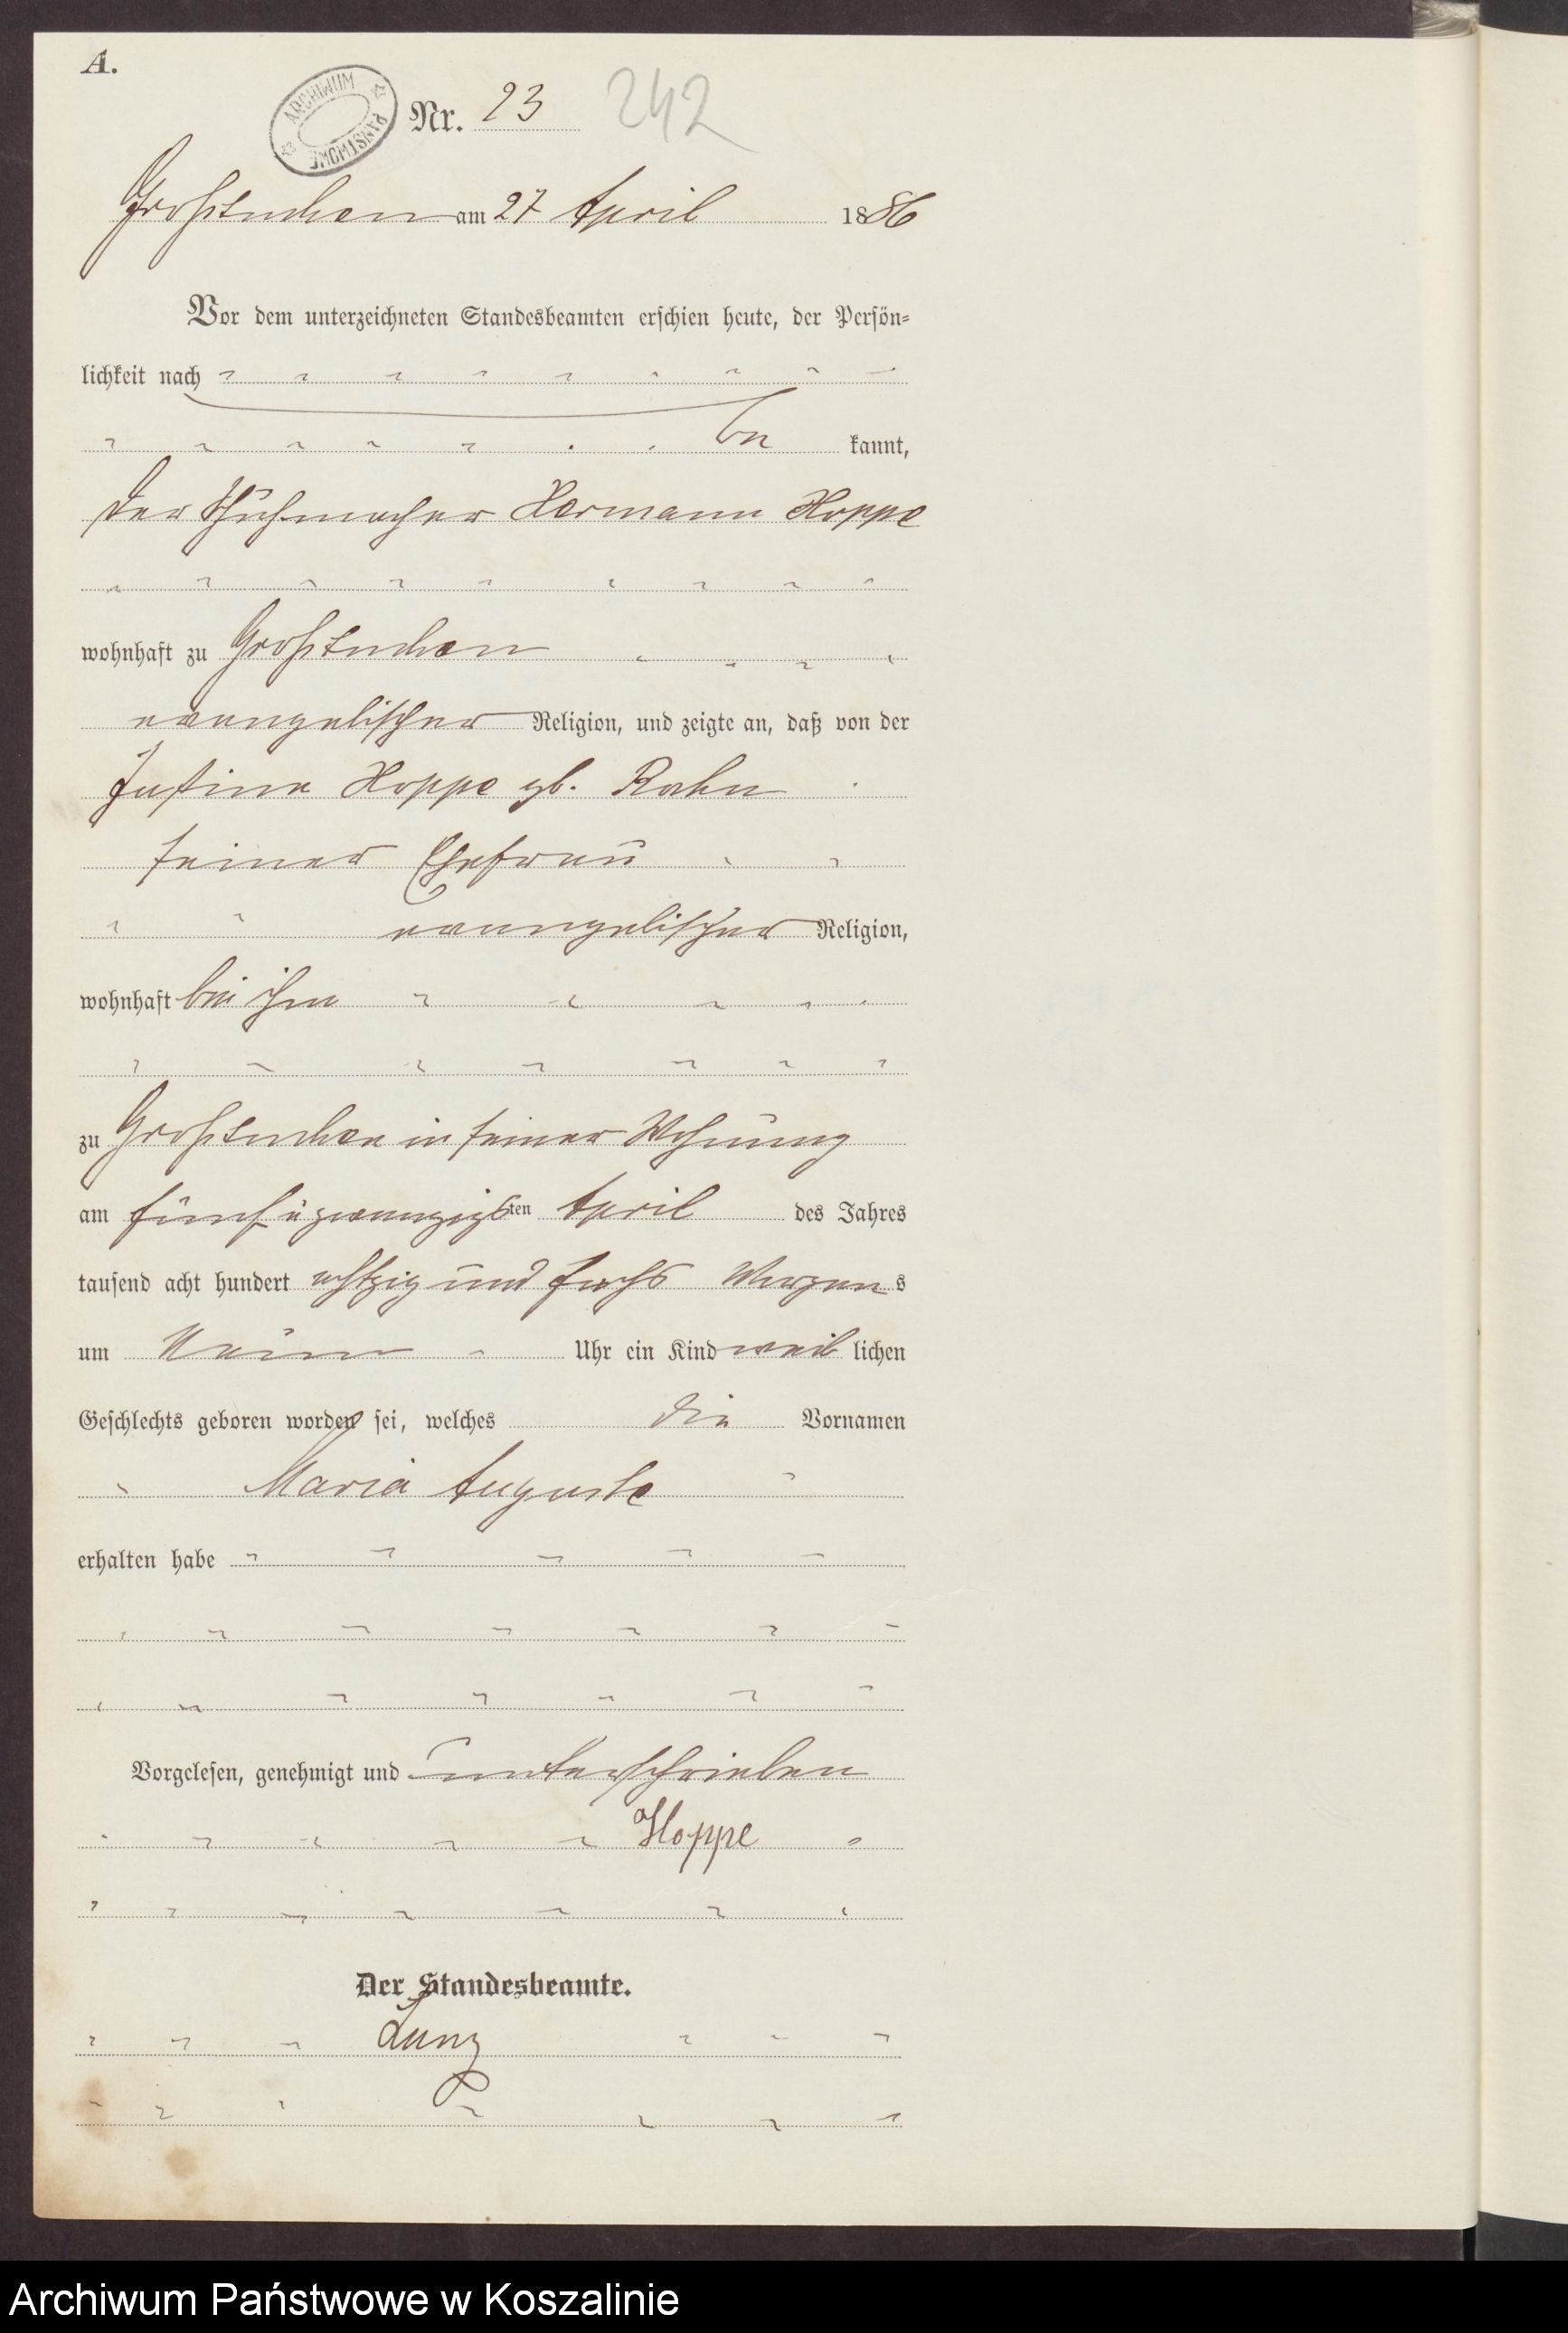 A.
ARCHIWUM PAŃSTWOWE
Nr. 23 242
Großtuchen am 27 April 1886
Vor dem unterzeichneten Standesbeamten erschien heute, der Persön-
lichkeit nach
be kannt,
der Schuhmacher Hermann Hoppe
wohnhaft zu Großtuchen
evangelischer Religion, und zeigte an, daß von der
Justine Hoppe gb. Rahn
seiner Ehefrau
evangelischer Religion,
wohnhaft bei ihm
zu Großtuchen in seiner Wohnung
am fünf u zwanzigsten April des Jahres
tausend acht hundert achtzig und sechs Morgens
um Neun Uhr ein Kind weib lichen
Geschlechts geboren worden sei, welches die Vornamen
Maria Auguste
erhalten habe
Vorgelesen, genehmigt und unterschrieben
Hoppe
Der Standesbeamte.
Archiwum Państwowe w Koszalinie